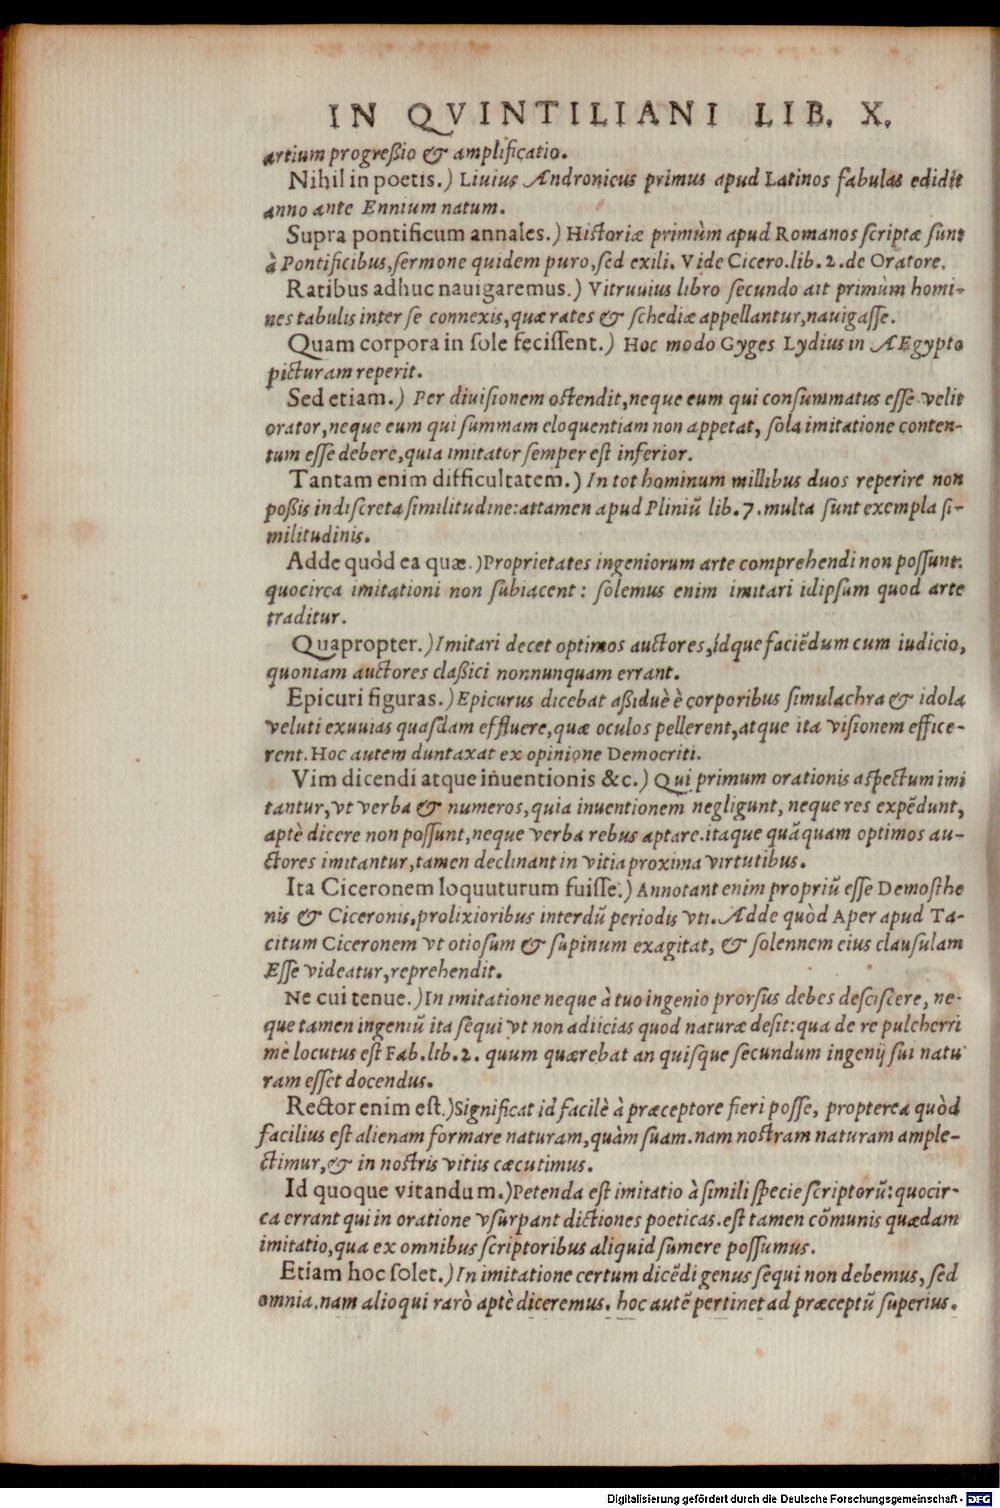 IN QVINTILIANI LIB. X.
artium progreßio & amplificatio.
Nihil in poetis.) Liuius Andronicus primus apud Latinos fabulas edidit
anno ante Ennium natum.
Supra pontificum annales.) Historiæ primùm apud Romanos scriptæ sunt
à Pontificibus, sermone quidem puro, sed exili. Vide Cicero. lib. 2. de Oratore.
Ratibus adhuc nauigaremus.) Vitruuius libro secundo ait primùm homi-
nes tabulis inter se connexis, quæ rates & schediæ appellantur, nauigasse.
Quam corpora in sole fecissent.) Hoc modo Gyges Lydius in AEgypto
picturam reperit.
Sed etiam.) Per diuisionem ostendit, neque eum qui consummatus esse velit
orator, neque eum qui summam eloquentiam non appetat, sola imitatione conten-
tum esse debere, quia imitator semper est inferior.
Tantam enim difficultatem.) In tot hominum millibus duos reperire non
poßis indiscreta similitudine: attamen apud Pliniū lib. 7. multa sunt exempla si-
militudinis.
Adde quòd ea quæ.) Proprietates ingeniorum arte comprehendi non possunt:
quocirca imitationi non subiacent: solemus enim imitari idipsum quod arte
traditur.
Quapropter.) Imitari decet optimos auctores, idque faciēdum cum iudicio,
quoniam auctores claßici nonnunquam errant.
Epicuri figuras.) Epicurus dicebat aßiduè è corporibus simulachra & idola
veluti exuuias quasdam effluere, quæ oculos pellerent, atque ita visionem effice-
rent. Hoc autem duntaxat ex opinione Democriti.
Vim dicendi atque inuentionis &c.) Qui primum orationis aspectum imi
tantur, vt verba & numeros, quia inuentionem negligunt, neque res expēdunt,
aptè dicere non possunt, neque verba rebus aptare. itaque quāquam optimos au-
ctores imitantur, tamen declinant in vitia proxima virtutibus.
Ita Ciceronem loquuturum fuisse.) Annotant enim propriū esse Demosthe
nis & Ciceronis, prolixioribus interdū periodis vti. Adde quòd Aper apud Ta-
citum Ciceronem vt otiosum & supinum exagitat, & solennem eius clausulam
Esse videatur, reprehendit.
Ne cui tenue.) In imitatione neque à tuo ingenio prorsus debes desciscere, ne-
que tamen ingeniū ita sequi vt non adiicias quod naturæ desit: qua de re pulcherri
mè locutus est Fab. lib. 2. quum quærebat an quisque secundum ingenij sui natu
ram esset docendus.
Rector enim est.) Significat id facilè à præceptore fieri posse, propterea quòd
facilius est alienam formare naturam, quàm suam. nam nostram naturam ample-
ctimur, & in nostris vitiis cæcutimus.
Id quoque vitandum.) Petenda est imitatio à simili specie scriptorū: quocir-
ca errant qui in oratione vsurpant dictiones poeticas. est tamen cōmunis quædam
imitatio, qua ex omnibus scriptoribus aliquid sumere possumus.
Etiam hoc solet.) In imitatione certum dicēdi genus sequi non debemus, sed
omnia. nam alioqui rarò aptè diceremus. hoc autē pertinet ad præceptū superius.
Digitalisierung gefördert durch die Deutsche Forschungsgemeinschaft - DFG